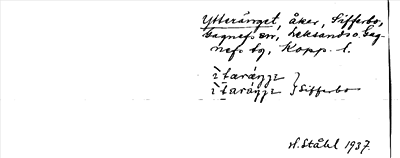 Ytteränget, åker, Sifferbo,
Gagnefs sn, Leksands o. Gag-
nefs tg, Kopp. l.
Sifferbo
H. Ståhl 1937.